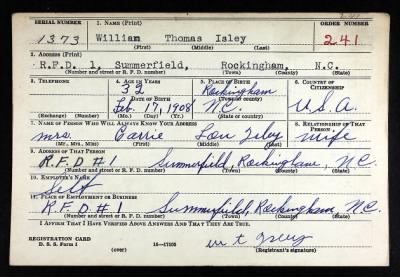 SERIAL NUMBER 1. NAME (Print) ORDER NUMBER
1373 William Thomas Isley 241
(First) (Middle) (Last)
2. ADDRESS (Print)
R.F.D. 1, Summerfield, Rockingham, N.C.
(Number and street or R. F. D. number) (Town) (County) (State)
3. TELEPHONE 4. AGE IN YEARS 5. PLACE OF BIRTH 6. COUNTRY OF CITIZENSHIP
32 Rockingham
DATE OF BIRTH (Town or county)
Feb. 17, 1908 N.C. U.S.A.
(Exchange) (Number) (Mo.) (Day) (Yr.) (State or country)
7. NAME OF PERSON WHO WILL ALWAYS KNOW YOUR ADDRESS 8. RELATIONSHIP OF THAT PERSON
Mrs. Carrie Lou Isley Wife
(Mr., Mrs., Miss) (First) (Middle) (Last)
9. ADDRESS OF THAT PERSON
R.F.D #1 Summerfield, Rockingham, N.C.
(Number and street or R. F. D. number) (Town) (County) (State)
10. EMPLOYER'S NAME
Self
11. PLACE OF EMPLOYMENT OR BUSINESS
R.F.D #1 Summerfield, Rockingham N.C.
(Number and street or R. F. D. number) (Town) (County) (State)
I AFFIRM THAT I HAVE VERIFIED ABOVE ANSWERS AND THAT THEY ARE TRUE.
REGISTRATION CARD
D. S. S. Form 1 (over) 16—17105 W T Isley
(Registrant's signature)